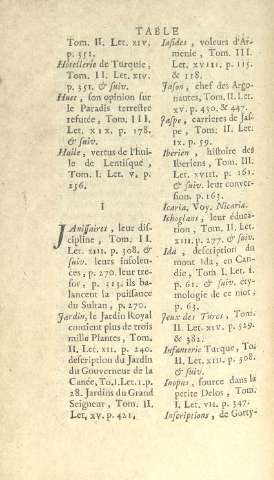 TABLE
Tom. II. Let. XIV.
p. 351.
Hôtellerie de Turquie,
Tom. II. Let. XIV.
p. 351. & suiv.
Huet, son opinion sur
le Paradis terrestre
refutée, Tom. III.
Let. XIX. p. 178.
& suiv.
Huile, vertus de l'hui-
le de Lentisque,
Tom. I. Let. V. p.
256.
I
JAnissaires, leur dis-
cipline, Tom. II.
Let. XIII. p. 308. &
suiv. leurs insolen-
ces; p. 270. leur tre-
sor, p. 313. ils ba-
lancent la puissance
du Sultan, p. 270.
Jardin, le Jardin Royal
contient plus de trois
mille Plantes, Tom.
II. Let. XII. p. 240.
description du Jardin
du Gouverneur de la
Canée, To, I. Let. I. p.
28. Jardins du Grand
Seigneur, Tom. II.
Let. XV. p. 421.
Iasides, voleurs d'Ar-
menie, Tom. III.
Let. XVIII. p. 115.
& 118.
Jason, chef des Argo-
nautes, Tom. II. Let.
XV. p. 450. & 447.
Jaspe, carrieres de Jas-
pe, Tom. II. Let.
IX. p. 59.
Iberien, histoire des
Iberiens, Tom. III.
Let. XVIII. p. 161.
& suiv. leur conver-
sion. p. 163.
Icaria, Voy. Nicaria.
Ichoglans, leur éduca-
tion, Tom. II. Let.
XIII. p. 277. & suiv.
Ida, description du
mont Ida; en Can-
die, Tom I. Let. I.
p. 61. & suiv. éty-
mologie de ce mot;
p. 63.
Jeux des Turcs, Tom.
II. Let. XIV. p. 329.
& 382.
Infanterie Turque, To.
II. Let. XIII. p. 308.
& suiv.
Inopus, source dans la
petite Delos, Tom.
I. Let. VII. p. 347.
Inscriptions, de Gorty-